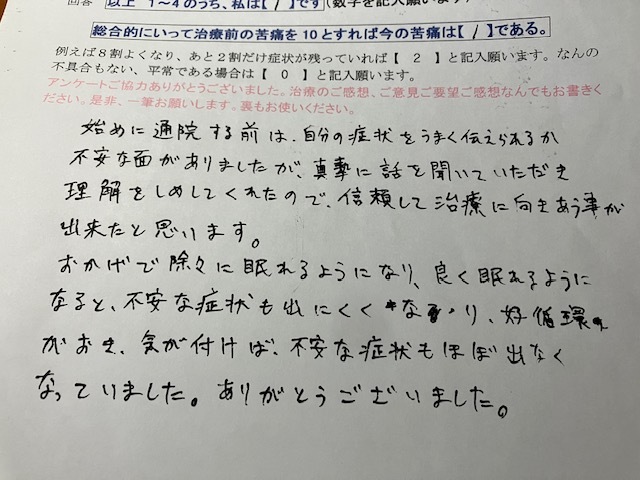 回答 以上 1～4のうち、私は【 1 】です（数字を記入願います）
総合的にいって治療前の苦痛を10とすれば今の苦痛は【 1 】である。
例えば8割よくなり、あと2割だけ症状が残っていれば【 2 】と記入願います。なんの
不具合もない、平常である場合は【 0 】と記入願います。
アンケートご協力ありがとうございました。治療のご感想、ご意見ご要望ご感想なんでもお書きく
ださい。是非、一筆お願いします。裏もお使いください。
始めに通院する前は、自分の症状をうまく伝えられるか
不安な面がありましたが、真摯に話を聞いていただき
理解をしめしてくれたので、信頼して治療に向きあう事が
出来たと思います。
おかげで除々に眠れるようになり、良く眠れるように
なると、不安な症状も出にくくなり、好循環
がおき、気が付けば、不安な症状もほぼ出なく
なっていました。ありがとうございました。